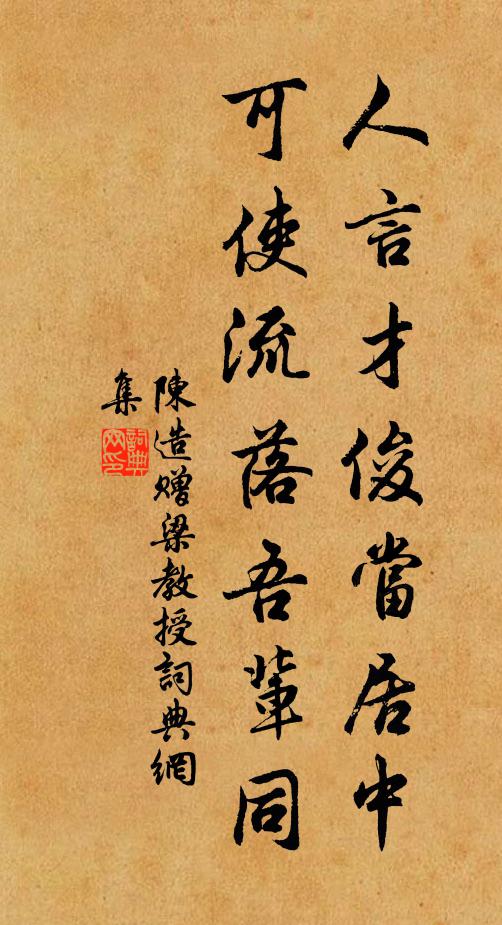 人言才俊當居中
可使流落吾輩同
陳造贈梁教授詞典網
集
詞典網印